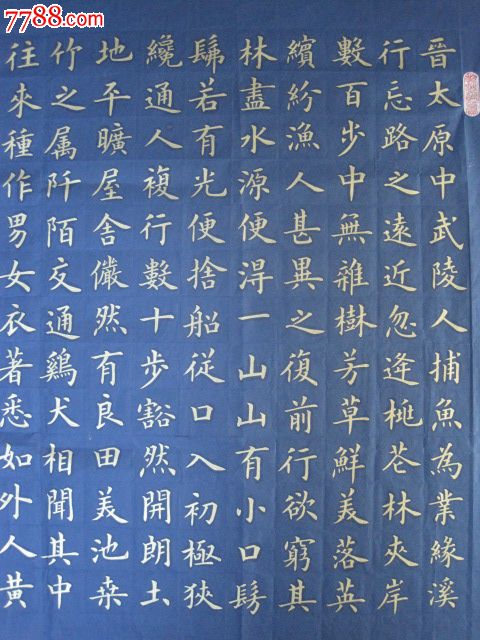 7788.com
中国收藏热线
晉太原中武陵人捕魚為業緣溪
行忘路之遠近忽逢桃花林夾岸
數百步中無雜樹芳草鮮美落英
繽紛漁人甚異之復前行欲窮其
林盡水源便得一山山有小口髣
髴若有光便捨船從口入初極狹
纔通人複行數十步豁然開朗土
地平曠屋舍儼然有良田美池桒
竹之属阡陌交通鷄犬相聞其中
往來種作男女衣著悉如外人黃